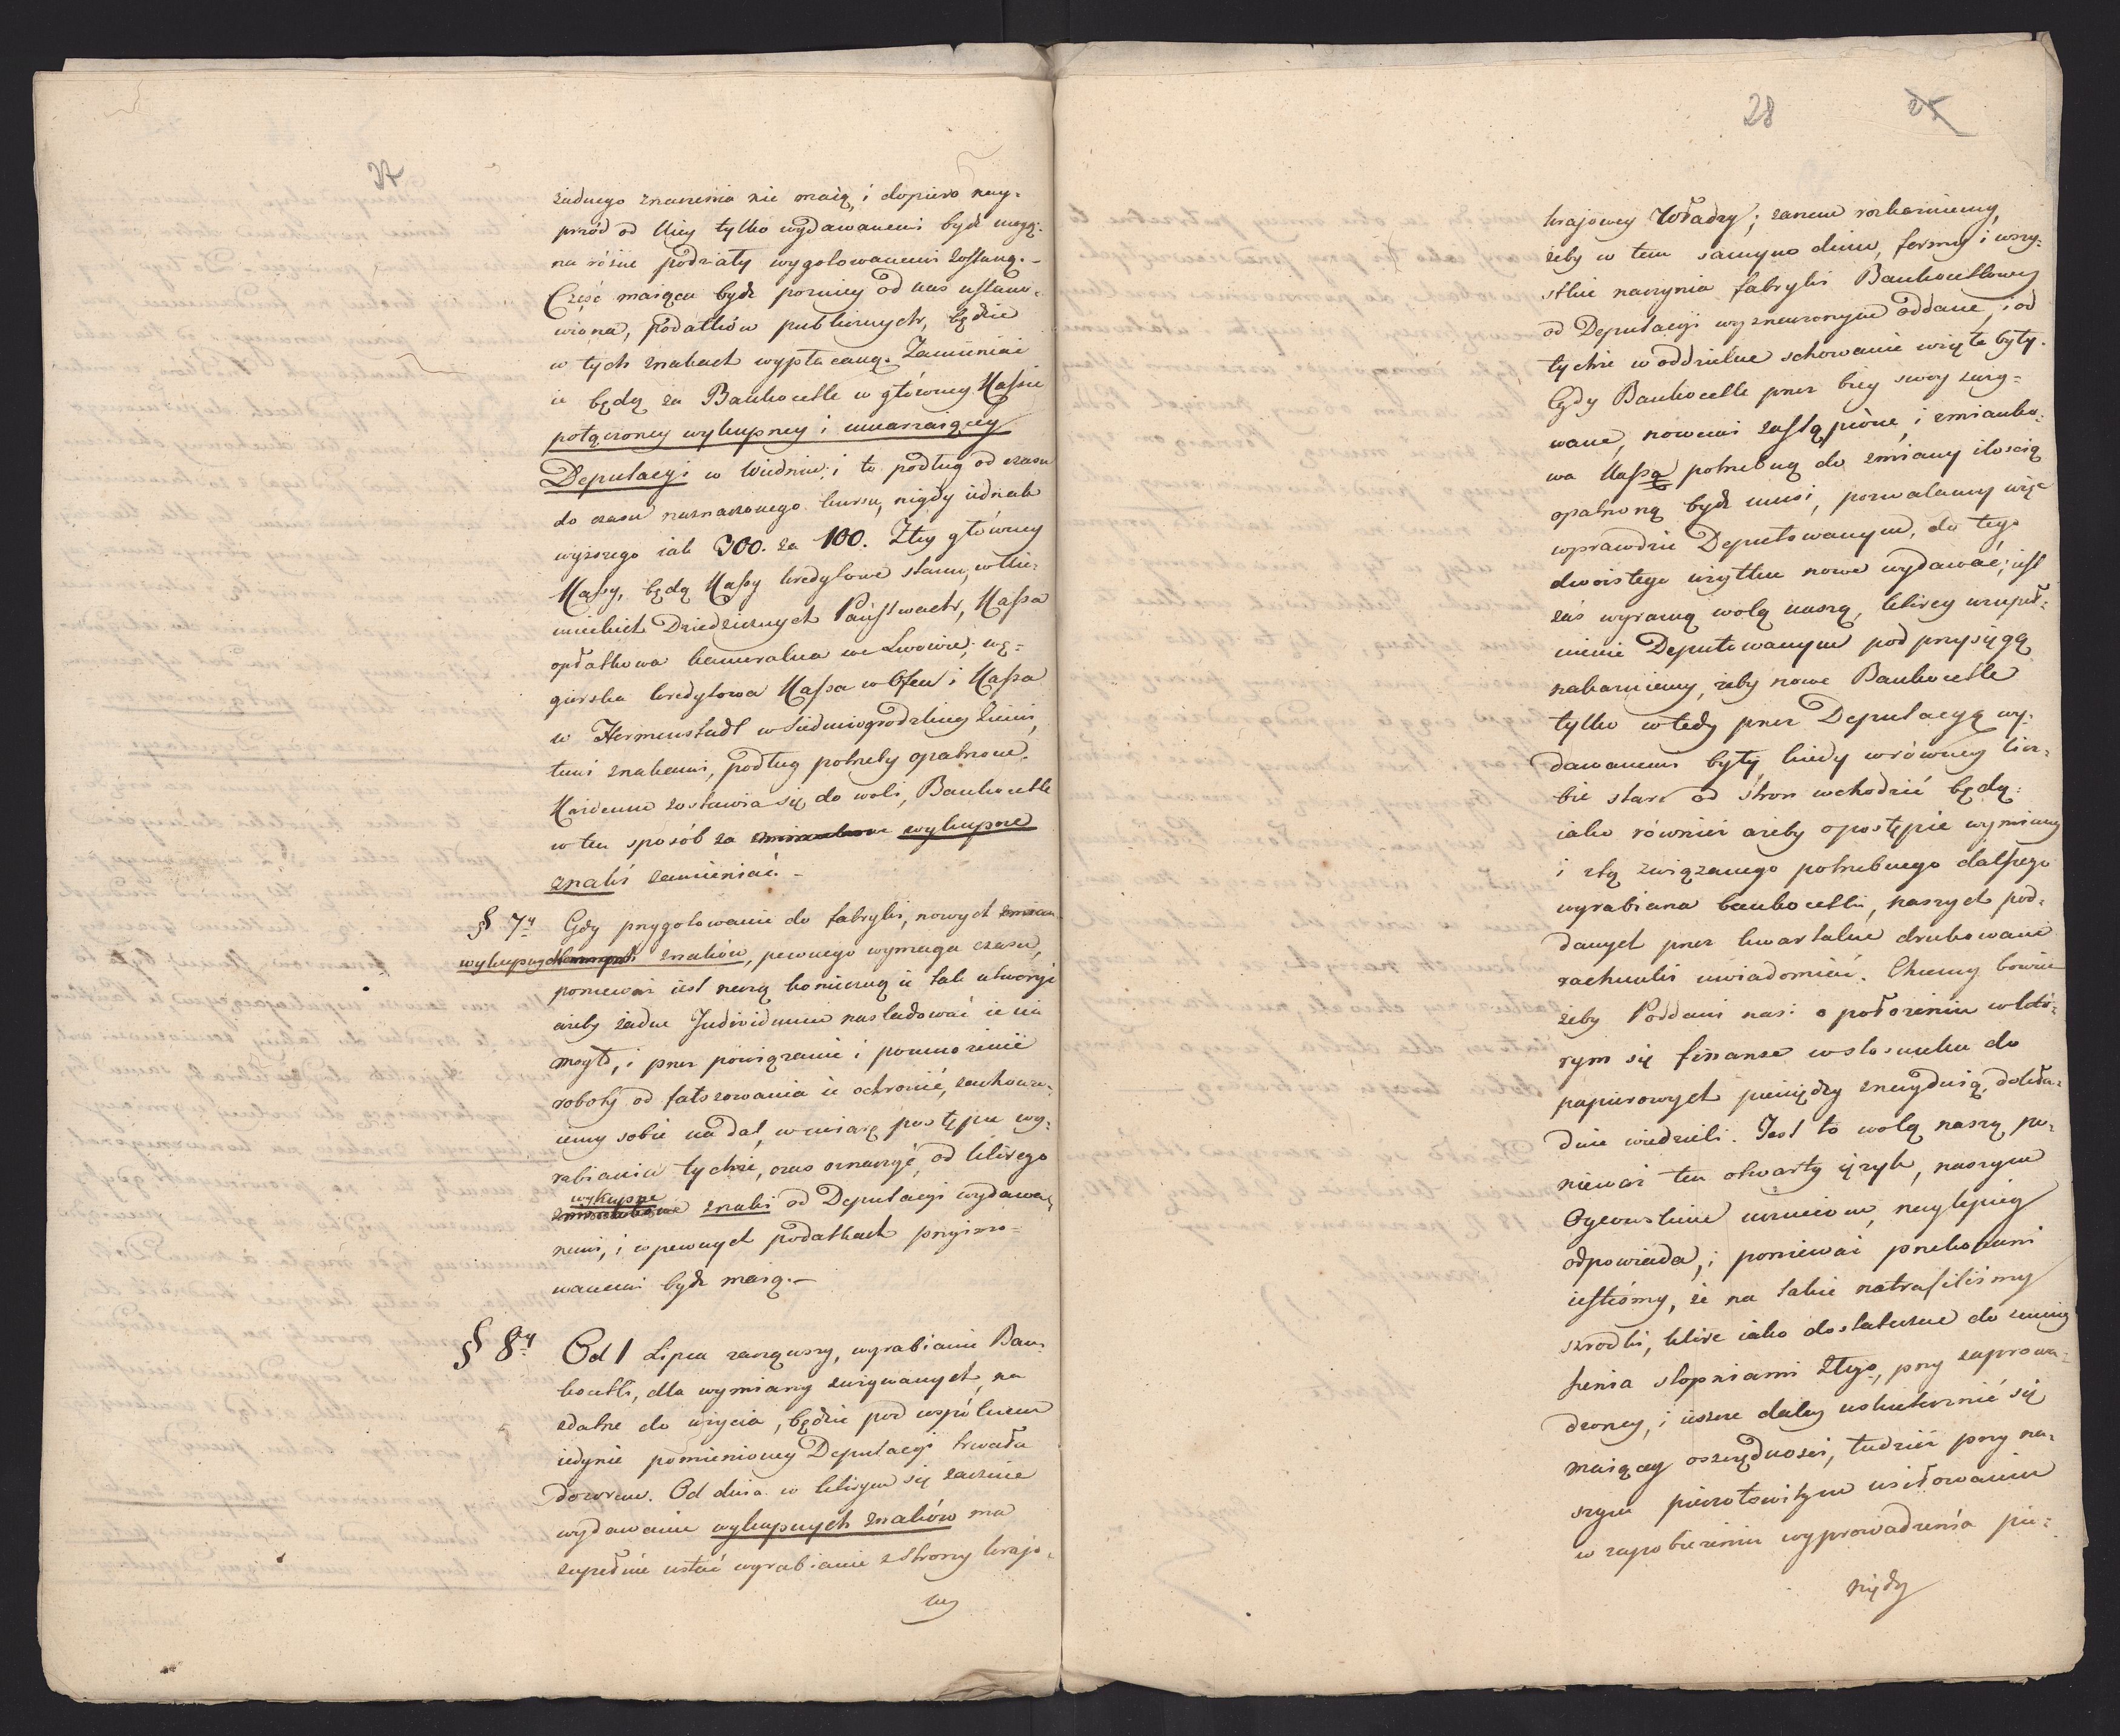 27
żadnego znaczenia nie maią, i dopiero nay=
przód od Niey tylko wydawanemi bydź mogą.
na różne podziały wygotowanemi zostaną. –
Część maiąca bydź pozniey od nas ustano=
wiona, podatków publicznych, będzie
w tych znakach wypłacaną. Zamieniać
ie będą za Bankocetle w główney Kassie
połączoney wykupney i umarzaiącey
Deputacyi w Wiedniu; i to podług od czasu
do czasu naznaczonego kursu, nigdy iednak
wyższego iak 300. za 100. Z tey główney
Kassy, będą Kassy kredytowe stanu, w Nie=
mieckich Dziedzicznych Państwach, Kassa
opłatkowa kameralna we Lwowie, wę=
gierska kredytowa Kassa w Ofen i Kassa
w Hermenstadt w Siedmiogrodzkiey Ziemi,
temi znakami, podług potrzeby opatrzone.
Każdemu zostawia się do woli, Bankocetle
w ten sposób za zmiankowe wykupne
znaki zamieniać. –
§ 7y Gdy przygotowanie do fabryki, nowych zmian
wykupnych znaków, pewnego wymaga czasu,
ponieważ iest rzeczą konieczną ie tak utworzyć
ażeby żadne Individuum nasladować ie nie
mogło, i przez powiązanie i pomnożenie
roboty od fałszowania ie ochronić, zachowu=
iemy sobie na dal, w miarę postępu wy=
rabiania tychże, czas oznaczyć, od którego
wykupne
zmiankowe znaki od Deputacyi wydawa=
nemi, i w pewnych podatkach przyimo=
wanemi bydź maią. –
§ 8y Od 1 Lipca zacząwszy, wyrabianie Ban=
kocetli, dla wymiany zużywanych, na
zdatne do użycia, będzie pod wspólnem
iedynie pomienioney Deputacyi trwało
dozorem. Od dnia w którym się zacznie
wydawanie wykupnych znaków ma
zupełnie ustać wyrabianie z strony krajo=
wey
28 25
krajowey Władzy; zarazem rozkazuiemy,
żeby w tem samym dniu, formy i wszy=
stkie naczynia fabryki Bankocetlowey
od Deputacyi wyznaczonym oddane, i od
tychże w oddzielne schowanie wzięte były.
Gdy Bankocetle przez bieg swoy zuży=
wane, nowemi zastąpione, i zmianko=
wa Kassa potrzebną do zmiany ilością
opatrzoną bydź musi, pozwalamy więc
wprawdzie Deputowanym, do tego
dwoistego użytku nowe wydawać; iest
zaś wyrazną wolą naszą, którey uzupeł=
nienie Deputowanym pod przysięgą
nakazuiemy, żeby nowe Bankocetle
tylko wtedy przez Deputacyą wy=
dawanemi były, kiedy w równey licz=
bie stare od stron wchodzić będą:
iako również ażeby o postępie wymiany
i z tą związanego potrzebnego dalszego
wyrabiana bankocetli, naszych pod=
danych przez kwartalne drukowane
rachunki uwiadomiać. Chcemy bowiem
żeby Poddani nasi o położeniu w któ=
rym się finanse w stosunku do
papierowych pieniędzy znayduią, dokła=
dnie wiedzieli. Jest to wolą naszą po=
nieważ ten otwarty ięzyk, naszym
Oycowskim uczuciom, naylepiey
odpowiada, i ponieważ przekonani
iesteśmy, że na takie natrafiliśmy
szrodki, które iako dostateczne do zmniey
szenia stopniami złego, przy zaprowa=
dzoney, i ieszcze daley uskutecznić się
maiącey oszczędności, tudzież przy na=
szym pieczołowitym usiłowaniu
w zapobieżeniu wyprowadzenia pie=
niędzy